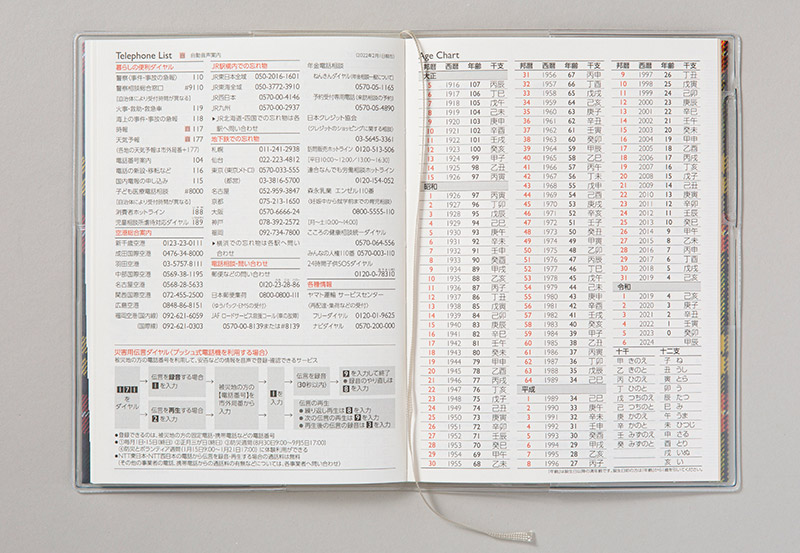 Telephone List
自動音声案内
(2022年2月1日現在)
暮らしの便利ダイヤル
警察(事件・事故の急報) 110
警察相談総合窓口 #9110
(自治体により受付時間が異なる)
火事・救助・救急車 119
海上の事件・事故の急報 118
時報 117
天気予報 177
(各地の天気予報は市外局番+177)
電話番号案内 104
電話の新設・移転など 116
国内電報の申し込み 115
子ども医療電話相談 #8000
(自治体により受付時間が異なる)
消費者ホットライン 188
児童相談所虐待対応ダイヤル 189
空港総合案内
新千歳空港 0123-23-0111
成田国際空港 0476-34-8000
羽田空港 03-5757-8111
中部国際空港 0569-38-1195
名古屋空港 0568-28-5633
関西国際空港 072-455-2500
広島空港 0848-86-8151
福岡空港(国内線) 092-621-6059
(国際線) 092-621-0303
JR駅構内での忘れ物
JR東日本全域 050-2016-1601
JR東海全域 050-3772-3910
JR西日本 0570-00-4146
JR九州 0570-00-2937
▶JR北海道・四国での忘れ物は各
駅へ問い合わせ
地下鉄での忘れ物
札幌 011-241-2938
仙台 022-223-4812
東京(東京メトロ) 0570-033-555
(都営) 03-3816-5700
名古屋 052-959-3847
京都 075-213-1650
大阪 0570-6666-24
神戸 078-392-2572
福岡 092-734-7800
▶横浜での忘れ物は各駅へ問い
合わせ
電話相談・問い合わせ
郵便などの問い合わせ
0120-23-28-86
日本郵便集荷 0800-0800-111
(ゆうパックEXPの受付)
JAF ロードサービス救援コール(車の故障)
0570-00-8139または#8139
年金電話相談
ねんきんダイヤル(年金相談一般について)
0570-05-1165
予約受付専用電話(来訪相談の予約)
0570-05-4890
日本クレジット協会
(クレジットのショッピングに関する相談)
03-5645-3361
訪問販売ホットライン 0120-513-506
(平日10:00〜12:00/13:00〜16:30)
連合なんでも労働相談ホットライン
0120-154-052
森永乳業 エンゼル110番
(妊娠中から就学前までの育児相談)
0800-5555-110
こころの健康相談統一ダイヤル
0570-064-556
みんなの人権110番 0570-003-110
24時間子供SOSダイヤル
0120-0-78310
各種情報
ヤマト運輸 サービスセンター
(再配達・集荷などの受付)
フリーダイヤル 0120-01-9625
ナビダイヤル 0570-200-000
災害用伝言ダイヤル〈プッシュ式電話機を利用する場合〉
被災地の方の電話番号を利用して、安否などの情報を音声で登録・確認できるサービス
171
を
ダイヤル
伝言を録音する場合
1を入力
伝言を再生する場合
2を入力
被災地の方の
【電話番号】を
市外局番から
入力
1を
入力
伝言を録音
(30秒以内)
9を入力して終了
●録音のやり直しは
8を入力
伝言の再生
●繰り返し再生は8を入力
●次の伝言の再生は9を入力
●再生後の伝言の録音は3を入力
●登録できるのは、被災地の方の固定電話・携帯電話などの電話番号
●①毎月1日・15日(終日) ②正月三が日(終日) ③防災週間(8月30日9:00〜9月5日17:00)
④防災とボランティア週間(1月15日9:00〜1月21日17:00)に体験利用ができる
●NTT東日本・NTT西日本の電話から伝言を録音・再生する場合の通話料は無料
(その他の事業者の電話、携帯電話からの通話料の有無などについては、各事業者へ問い合わせ)
Age Chart
邦暦 西暦 年齢 干支
大正
5 1916 107 丙辰
6 1917 106 丁巳
7 1918 105 戊午
8 1919 104 己未
9 1920 103 庚申
10 1921 102 辛酉
11 1922 101 壬戌
12 1923 100 癸亥
13 1924 99 甲子
14 1925 98 乙丑
15 1926 97 丙寅
昭和
1 1926 97 丙寅
2 1927 96 丁卯
3 1928 95 戊辰
4 1929 94 己巳
5 1930 93 庚午
6 1931 92 辛未
7 1932 91 壬申
8 1933 90 癸酉
9 1934 89 甲戌
10 1935 88 乙亥
11 1936 87 丙子
12 1937 86 丁丑
13 1938 85 戊寅
14 1939 84 己卯
15 1940 83 庚辰
16 1941 82 辛巳
17 1942 81 壬午
18 1943 80 癸未
19 1944 79 甲申
20 1945 78 乙酉
21 1946 77 丙戌
22 1947 76 丁亥
23 1948 75 戊子
24 1949 74 己丑
25 1950 73 庚寅
26 1951 72 辛卯
27 1952 71 壬辰
28 1953 70 癸巳
29 1954 69 甲午
30 1955 68 乙未
邦暦 西暦 年齢 干支
31 1956 67 丙申
32 1957 66 丁酉
33 1958 65 戊戌
34 1959 64 己亥
35 1960 63 庚子
36 1961 62 辛丑
37 1962 61 壬寅
38 1963 60 癸卯
39 1964 59 甲辰
40 1965 58 乙巳
41 1966 57 丙午
42 1967 56 丁未
43 1968 55 戊申
44 1969 54 己酉
45 1970 53 庚戌
46 1971 52 辛亥
47 1972 51 壬子
48 1973 50 癸丑
49 1974 49 甲寅
50 1975 48 乙卯
51 1976 47 丙辰
52 1977 46 丁巳
53 1978 45 戊午
54 1979 44 己未
55 1980 43 庚申
56 1981 42 辛酉
57 1982 41 壬戌
58 1983 40 癸亥
59 1984 39 甲子
60 1985 38 乙丑
61 1986 37 丙寅
62 1987 36 丁卯
63 1988 35 戊辰
64 1989 34 己巳
平成
1 1989 34 己巳
2 1990 33 庚午
3 1991 32 辛未
4 1992 31 壬申
5 1993 30 癸酉
6 1994 29 甲戌
7 1995 28 乙亥
8 1996 27 丙子
邦暦 西暦 年齢 干支
9 1997 26 丁丑
10 1998 25 戊寅
11 1999 24 己卯
12 2000 23 庚辰
13 2001 22 辛巳
14 2002 21 壬午
15 2003 20 癸未
16 2004 19 甲申
17 2005 18 乙酉
18 2006 17 丙戌
19 2007 16 丁亥
20 2008 15 戊子
21 2009 14 己丑
22 2010 13 庚寅
23 2011 12 辛卯
24 2012 11 壬辰
25 2013 10 癸巳
26 2014 9 甲午
27 2015 8 乙未
28 2016 7 丙申
29 2017 6 丁酉
30 2018 5 戊戌
31 2019 4 己亥
令和
1 2019 4 己亥
2 2020 3 庚子
3 2021 2 辛丑
4 2022 1 壬寅
5 2023 0 癸卯
6 2024 甲辰
十干 十二支
甲 きのえ 子 ね
乙 きのと 丑 うし
丙 ひのえ 寅 とら
丁 ひのと 卯 う
戊 つちのえ 辰 たつ
己 つちのと 巳 み
庚 かのえ 午 うま
辛 かのと 未 ひつじ
壬 みずのえ 申 さる
癸 みずのと 酉 とり
戌 いぬ
亥 い